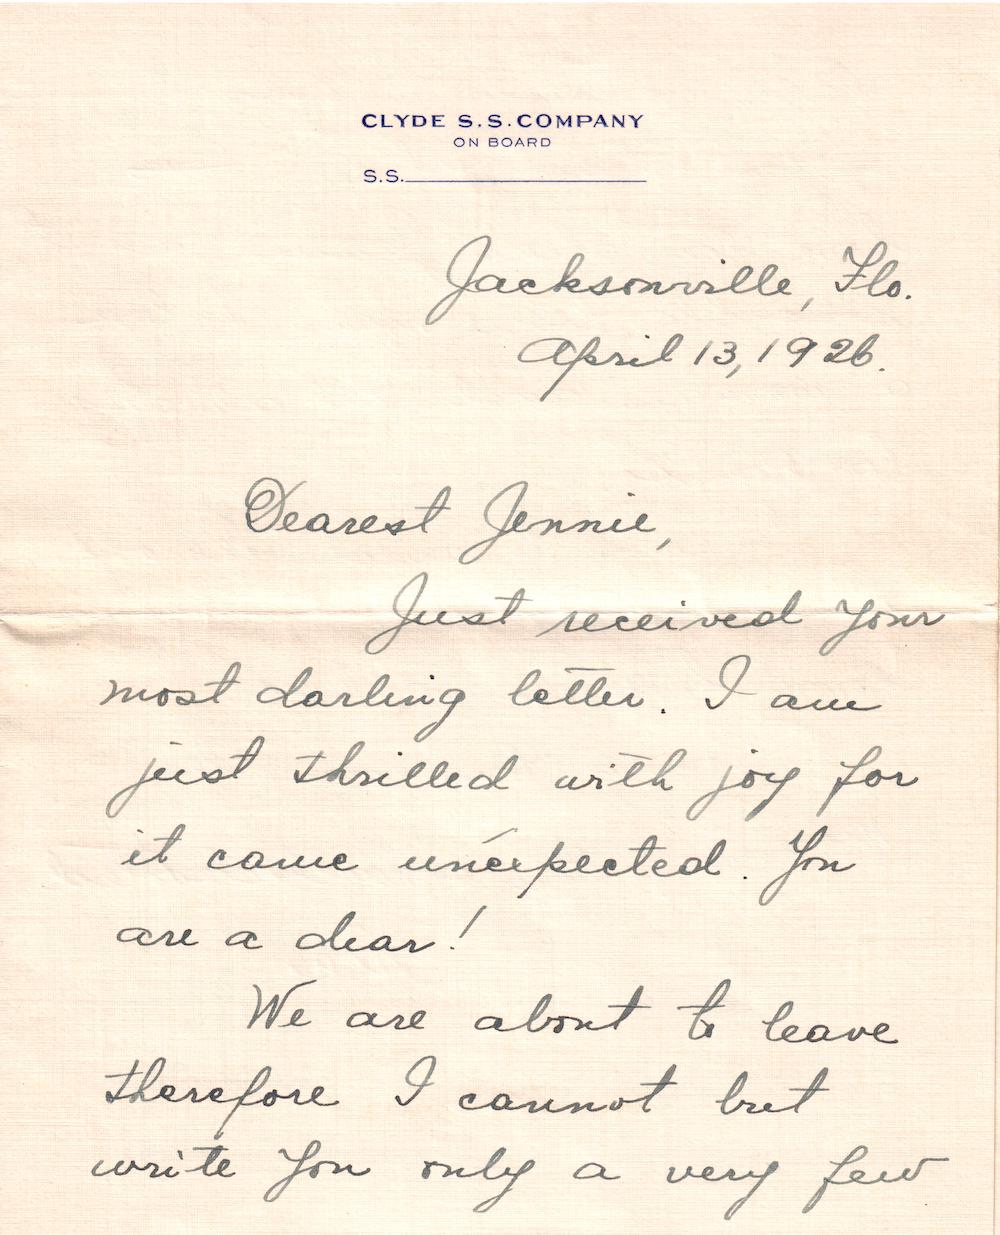 CLYDE S.S. COMPANY
ON BOARD
S.S.
Jacksonville, Flo.
April 13, 1926.
Dearest Jennie,
Just received your
most darling letter. I am
just thrilled with joy for
it came unexpected. You
are a dear!
We are about to leave
therefore I cannot but
write you only a very few